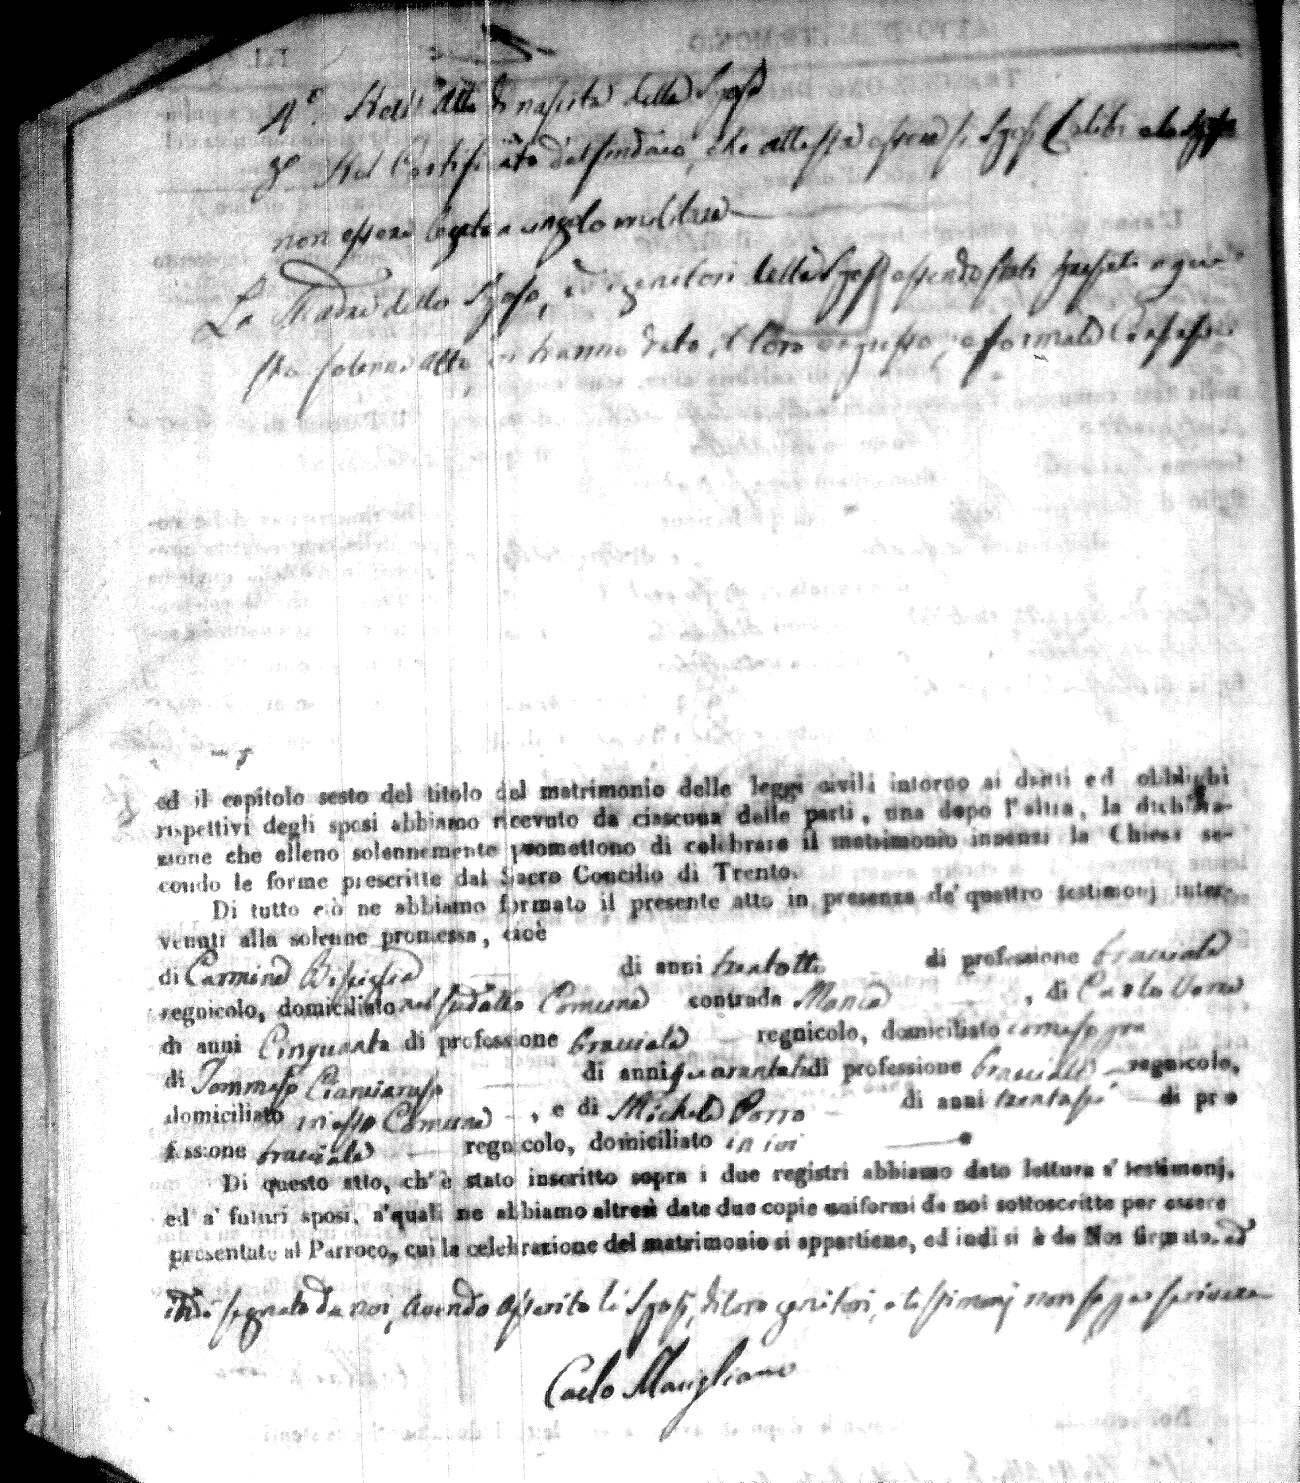 4°. Dell' Atto di nascita della Sposa
5° Del Certificato del Sindaco, che attesta essere li Sposi Celibi e lo Sposo
non essere legato a vincolo militare
La Madre dello Sposo, ed i genitori della Sposa essendo stati presenti a que-
sto solenne atto vi hanno dato il loro espresso, e formale Consenso
ed il capitolo sesto del titolo del matrimonio delle leggi civili intorno ai dritti ed obblighi
rispettivi degli sposi abbiamo ricevuto da ciascuna delle parti, una dopo l'altra, la dichiara-
zione che elleno solennemente promettono di celebrare il matrimonio innanzi la Chiesa se-
condo le forme prescritte dal Sacro Concilio di Trento.
Di tutto ciò ne abbiamo formato il presente atto in presenza de' quattro testimonj inter-
venuti alla solenne promessa, cioè
di Carmine di anni trentotto di professione bracciale
regnicolo, domiciliato nel sudetto Comune contrada , di Carlo
di anni Cinquanta di professione bracciale regnicolo, domiciliato come sopra
di Tommaso Cianciaruso di anni quaranta di professione bracciale regnicolo,
domiciliato in esso Comune , e di Michele Porro di anni trentasei di pro
fessione bracciale regnicolo, domiciliato in ivi
Di questo atto, ch'è stato inscritto sopra i due registri abbiamo dato lettura a' testimonj,
ed a' futuri sposi, a' quali ne abbiamo altresì date due copie uniformi da noi sottoscritte per essere
presentate al Parroco, cui la celebrazione del matrimonio si appartiene, ed indi si è da Noi firmato. ed
indi segnato da noi, avendo asserito li Sposi, di loro genitori, e testimonj non saper scrivere
Carlo Marigliano